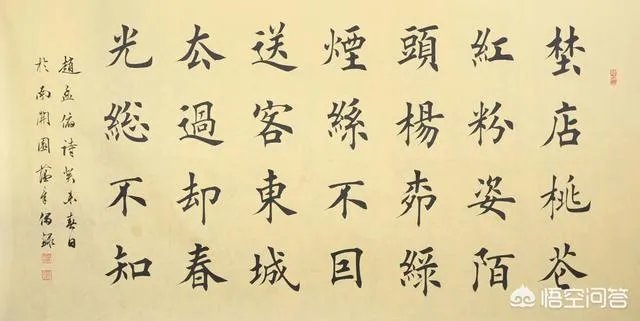 埜店桃花
紅粉姿陌
頭楊栁綠
煙絲不囙
送客東城
厺過却春
光総不知
趙孟俯詩癸未春日
於南開園
悟空问答